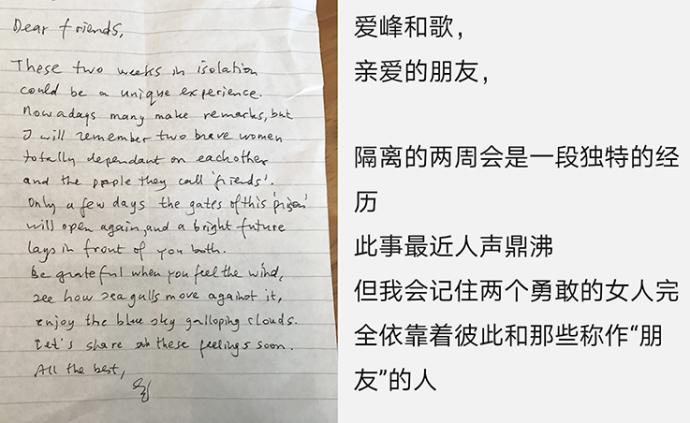 Dear friends,
These two weeks in isolation
could be a unique experience.
Nowadays many make remarks, but
I will remember two brave women
totally dependant on eachother
and the people they call 'friends'.
Only a few days the gates of this 'prison'
will open again, and a bright future
lays in front of you both.
Be grateful when you feel the wind,
see how seagulls move against it,
enjoy the blue sky galloping clouds.
Let's share these feelings soon.
All the best,
爱峰和歌，
亲爱的朋友，
隔离的两周会是一段独特的经
历
此事最近人声鼎沸
但我会记住两个勇敢的女人完
全依靠着彼此和那些称作“朋
友”的人